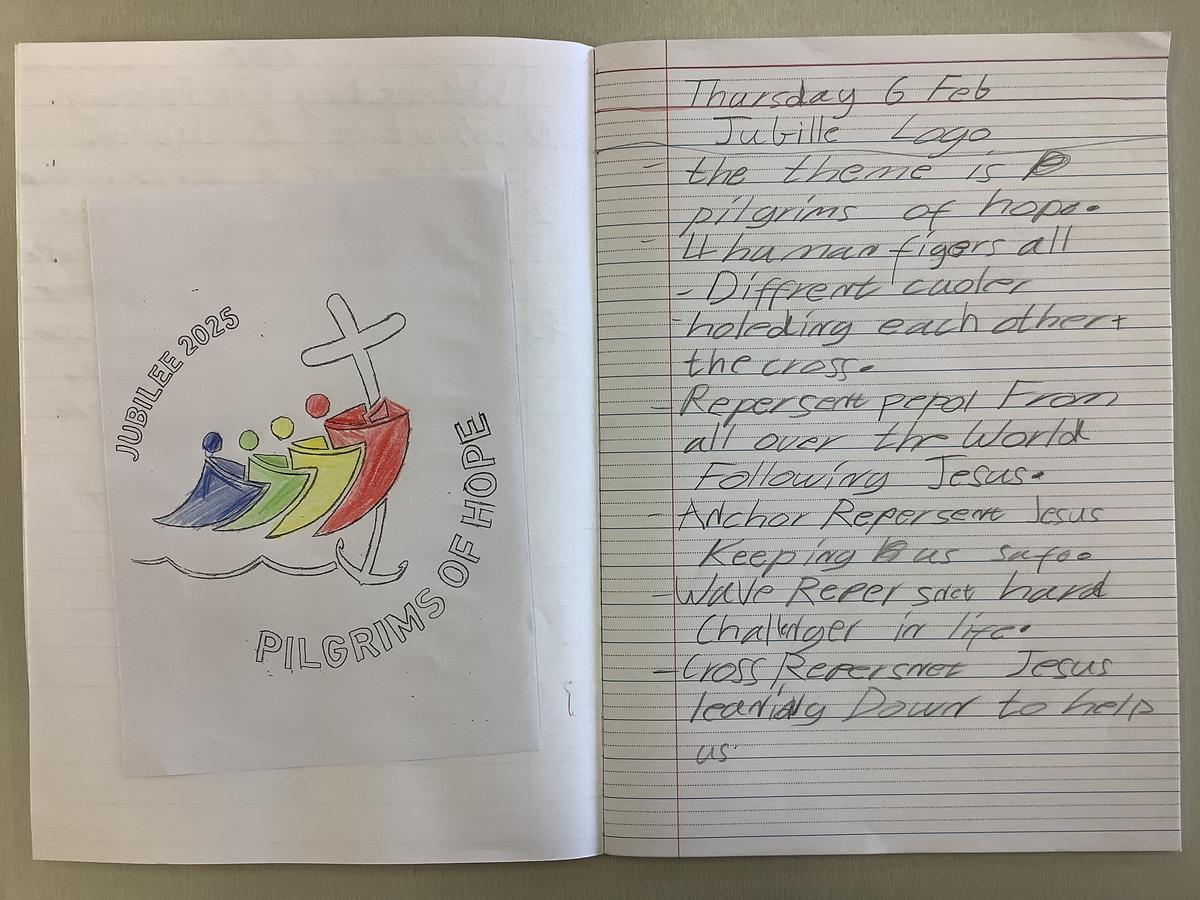 JUBILEE 2025
PILGRIMS OF HOPE
Thursday 6 Feb
Jubille Logo
- the theme is
pilgrims of hope.
- 4 human figers all
- Diffrent cuoler
- holeding each other +
the cross.
- Repersent pepol From
all over the World
Following Jesus.
- Anchor Repersent Jesus
Keeping us safe.
- Wave Repersnet hard
Challenger in life.
- Cross Repersnet Jesus
leaning Down to help
us.